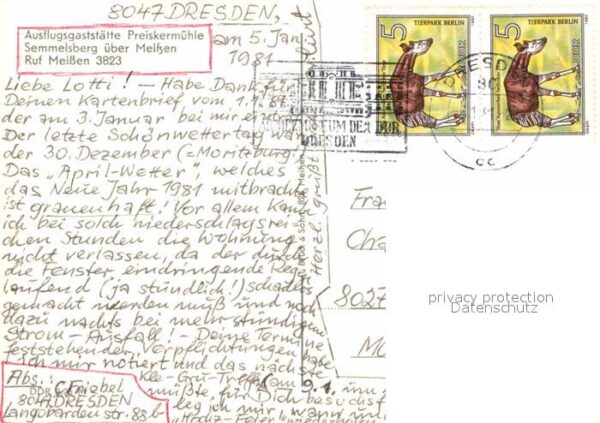 8047 DRESDEN,
am 5. Jan.
1981
Ausflugsgaststätte Preiskermühle
Semmelsberg über Meißen
Ruf Meißen 3823
Liebe Lotti! — Habe Dank für
Deinen Kartenbrief vom 1.1.81
der am 3. Januar bei mir
Der letzte Schönwettertag war
der 30. Dezember (=Moritzburg
Das „April-Wetter", welches
das Neue Jahr 1981 mitbrachte
ist grauenhaft! Vor allem kann
ich bei solch niederschlagsrei-
chen Stunden die Wohnung
nicht verlassen, da der durch
die Fenster eindringende Rege
laufend (ja stündlich!) schadlos
gemacht werden muß und noch
dazu nachts bei mehrstündigem
Strom-Ausfall! Deine Termine
feststehender Verpflichtungen habe
ich mir notiert und das nächste
Klee-Grü-Treffen am 9.1.
müßte für Dich
leg ich mir, wann
Abs.: C. Friebel
DDR
8047 DRESDEN
Langobardenstr. 88 b
Herzl. grüßt
TIERPARK BERLIN
5
DDR
TIERPARK BERLIN
5
DDR
DER DDR
DRESDEN
DRESDEN
cc
Fra
Cha
8027
Mo
privacy protection
Datenschutz